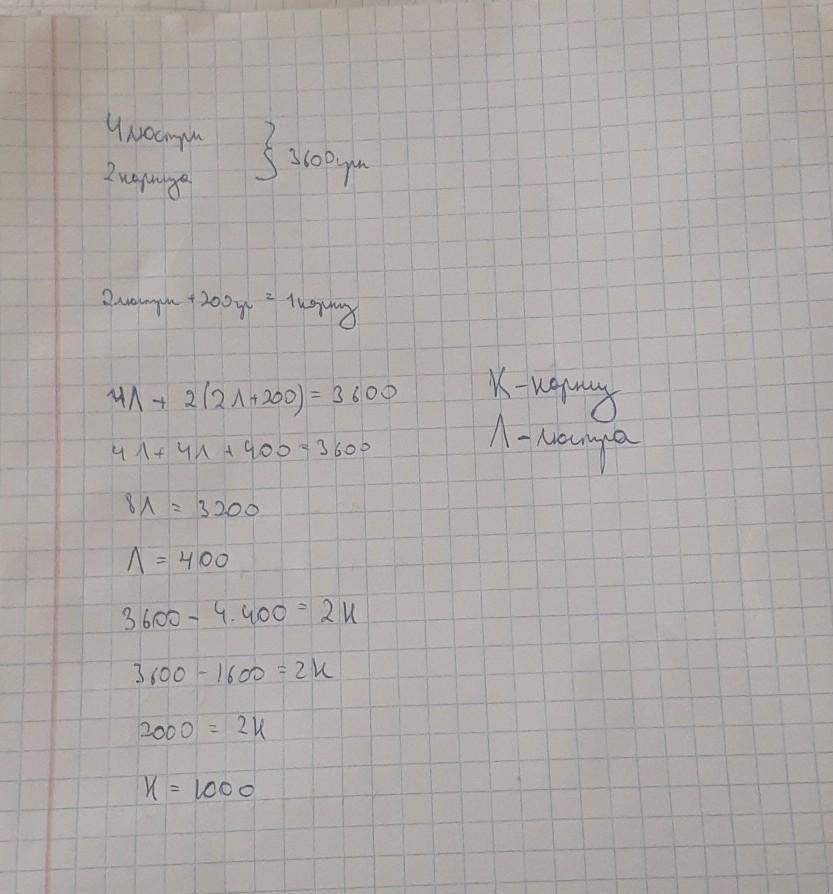 4 люстри } 3600 грн
2 карниза
2 люстри + 200гр = 1 карниз
4Л + 2(2Л+200) = 3600
К - карниз
4Л + 4Л + 400 = 3600
Л - люстра
8Л = 3200
Л = 400
3600 - 4.400 = 2К
3600 - 1600 = 2К
2000 = 2К
К = 1000